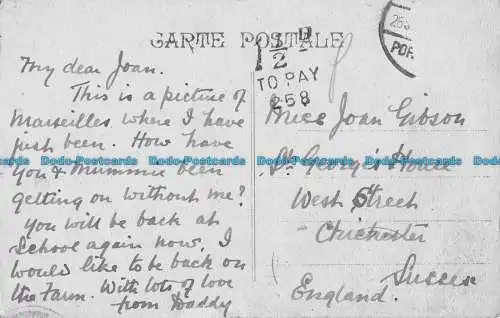 CARTE POSTALE
1½D
TO PAY
258
My dear Joan.
This is a picture of
Marseilles where I have
just been. How have
you & Mummie been
getting on without me?
You will be back at
School again now, I
would like to be back on
the Farm. With lots of love
from Daddy
Miss Joan Gibson
St. George's House
West Street
Chichester
Sussex
England.
Dodo-Postcards Dodo-Postcards Dodo-Postcards Dodo-Postcards Dodo-Postcards